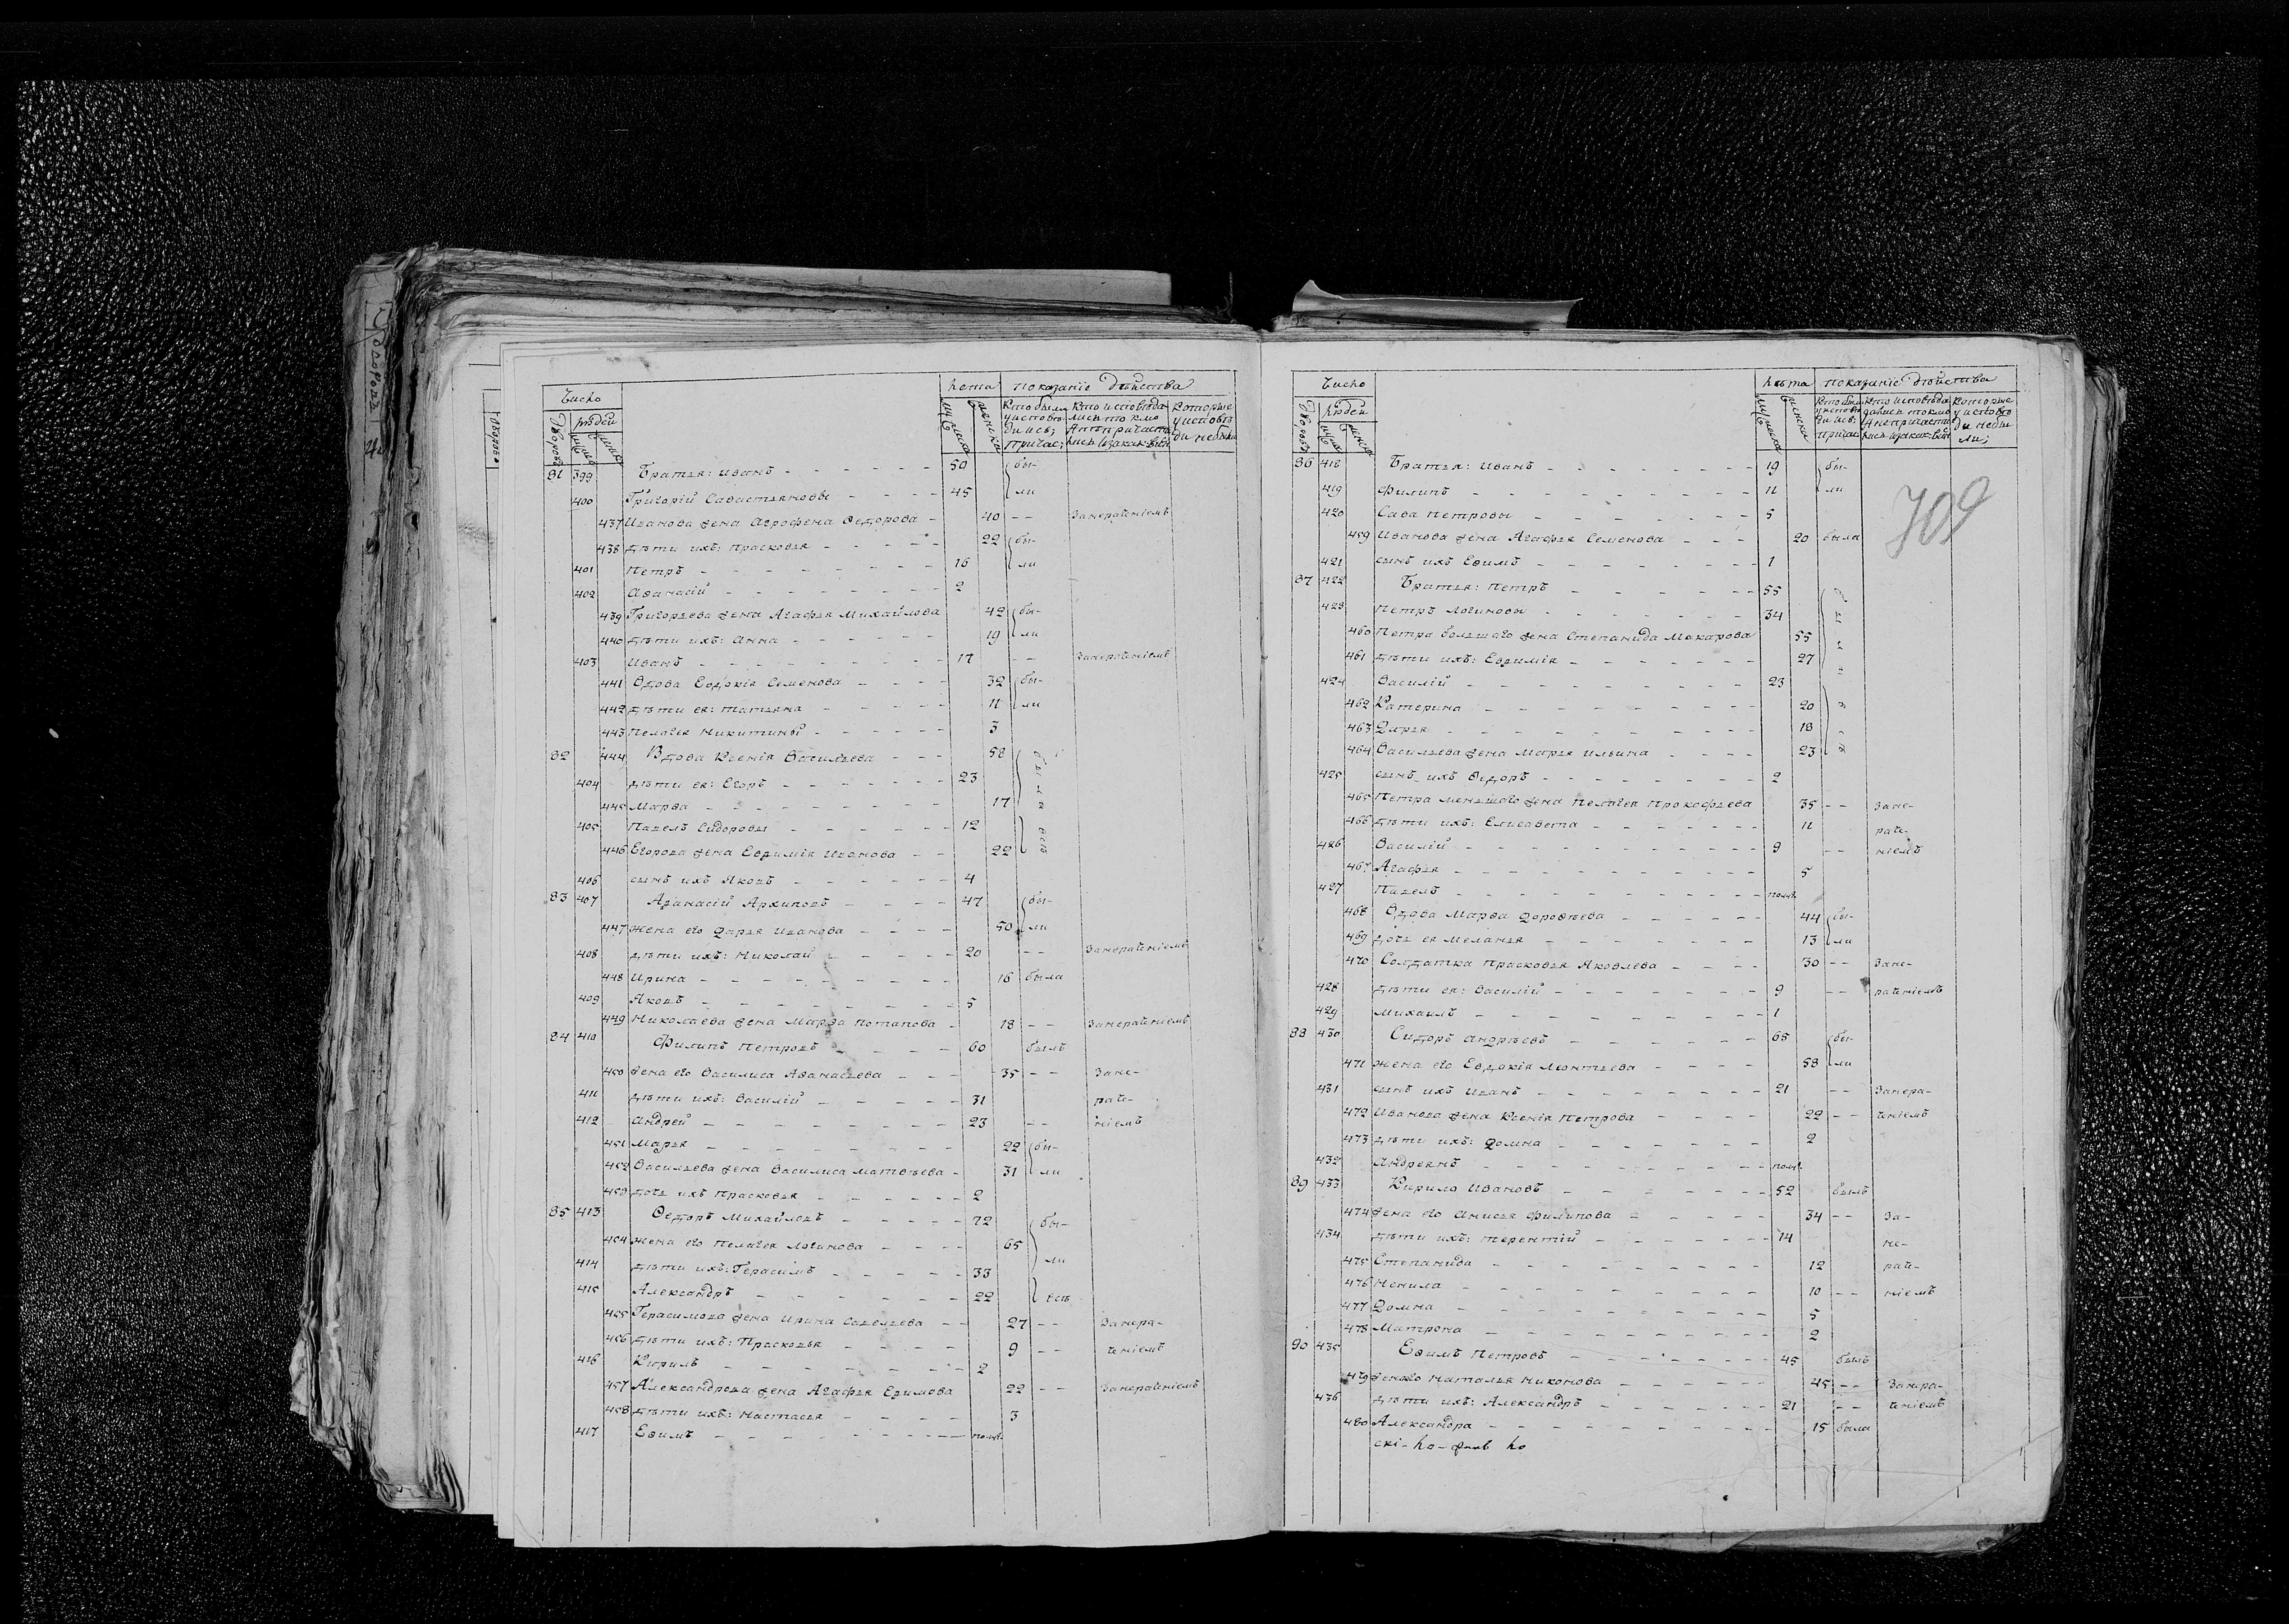 Число
Лета
показаніе дѣйства
Дворовъ
людей
мужеска
женска
Кто были у исповѣди и св: причас:
Кто исповѣдались токмо а не причастились и за какъ: вин
Которые у исповѣди не были
81 399 Братья: Иванъ 50 бы-
400 Григорій Савастьяновы 45 ли
437 Иванова жена Агрофена Ѳедорова 40 -- Занераченіемъ
438 дѣти ихъ: Прасковья 22 бы-
401 Петръ 16 ли
402 Аѳанасій 2
439 Григорьева жена Агафья Михайлова 42 бы-
440 дѣти ихъ: Анна 19 ли
403 Иванъ 17 -- Занераченіемъ
441 Вдова Евдокія Семенова 32 бы-
442 дѣти ея: Татьяна 11 ли
443 Пелагея Никитины 3
82 444 Вдова Ксенія Васильева 58
404 дѣти ея: Егоръ 23
445 Марѳа 17
405 Павелъ Сидоровы 12
446 Егорова жена Евѳимія Иванова 22
406 сынъ ихъ Яковъ 4
83 407 Аѳанасій Архиповъ 47 бы-
447 жена его Дарья Иванова 50 ли
408 дѣти ихъ: Николай 20 -- Занераченіемъ
448 Ирина 16 была
409 Яковъ 5
449 Николаева жена Марѳа Потапова 18 -- Занераченіемъ
84 410 Филипъ Петровъ 60 былъ
450 жена его Василиса Аѳанасьева 35 -- Зане-
411 дѣти ихъ: Василій 31 раче-
412 Андрей 23 -- ніемъ
451 Марья 22 бы-
452 Васильева жена Василиса Матвѣева 31 ли
453 дочь ихъ Прасковья 2
85 413 Ѳедоръ Михайловъ 72 бы-
454 жена его Пелагея Логинова 65
414 дѣти ихъ: Герасимъ 33 ли
415 Александръ 22
455 Герасимова жена Ирина Савельева 27 -- Занера-
456 дѣти ихъ: Прасковья 9 -- ченіемъ
416 Кирилъ 2
457 Александрова жена Агафья Еѳимова 22 -- Занераченіемъ
458 дѣти ихъ: Настасья 3
417 Еѳимъ полъ:
Число
Лѣта
показаніе дѣйства
Дворовъ
людей
мужеска
женска
Кто были у исповѣди и св: причас
Кто исповѣдались токмо а не причастились и за какъ: вин
Которые у исповѣди не были;
709
86 418 Братья: Иванъ 19 бы-
419 Филипъ 11 ли
420 Сава Петровы 5
459 Иванова жена Агафья Семенова 20 была
421 сынъ ихъ Еѳимъ 1
87 422 Братья: Петръ 55
423 Петръ Логиновы 34
460 Петра большаго жена Степанида Макарова 55
461 дѣти ихъ: Евѳимія 27
424 Василій 23
462 Катерина 20
463 Дарья 18
464 Васильева жена Марья Ильина 23
425 сынъ ихъ Ѳедоръ 2
465 Петра меньшого жена Пелагея Прокофьева 35 -- Зане-
466 дѣти ихъ: Елисавета 11 раче-
426 Василій 9 -- ніемъ
467 Агафья 5
427 Павелъ полъ:
468 Вдова Марѳа Дороѳѣева 44 бы-
469 дочь ея Меланья 13 ли
470 Солдатка Прасковья Яковлева 30 -- Зане-
428 дѣти ея: Василій 9 -- раченіемъ
429 Михаилъ 1
88 430 Сидоръ Андрѣевъ 65 бы-
471 жена его Евдокія Леонтьева 58 ли
431 сынъ ихъ Иванъ 21 -- Занера-
472 Иванова жена Ксенія Петрова 22 -- ченіемъ
473 дѣти ихъ: Домна 2
432 Андреянъ полъ:
89 433 Кирило Ивановъ 52 былъ
474 жена его Анисья Филипова 34 -- За-
434 дѣти ихъ: Терентій 14 не-
475 Степанида 12 раче-
476 Ненила 10 -- ніемъ
477 Домна 5
478 Матрона 2
90 435 Еѳимъ Петровъ 45 былъ
479 жена его Наталья Никонова 45 -- Занера-
436 дѣти ихъ: Александръ 21 -- ченіемъ
480 Александра 15 была